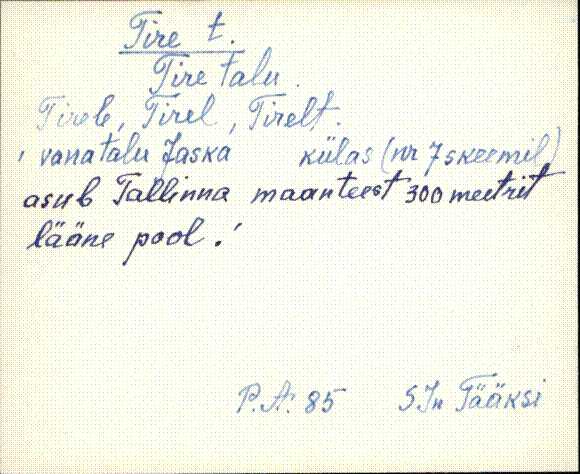 Tire t.
Tire talu.
Tirele, Tirel, Tirelt.
'vana talu Jaska külas (nr 7 skeemil)
asub Tallinna maanteest 300 meetrit
lääne pool.'
P.A. 85 SJn Tääksi